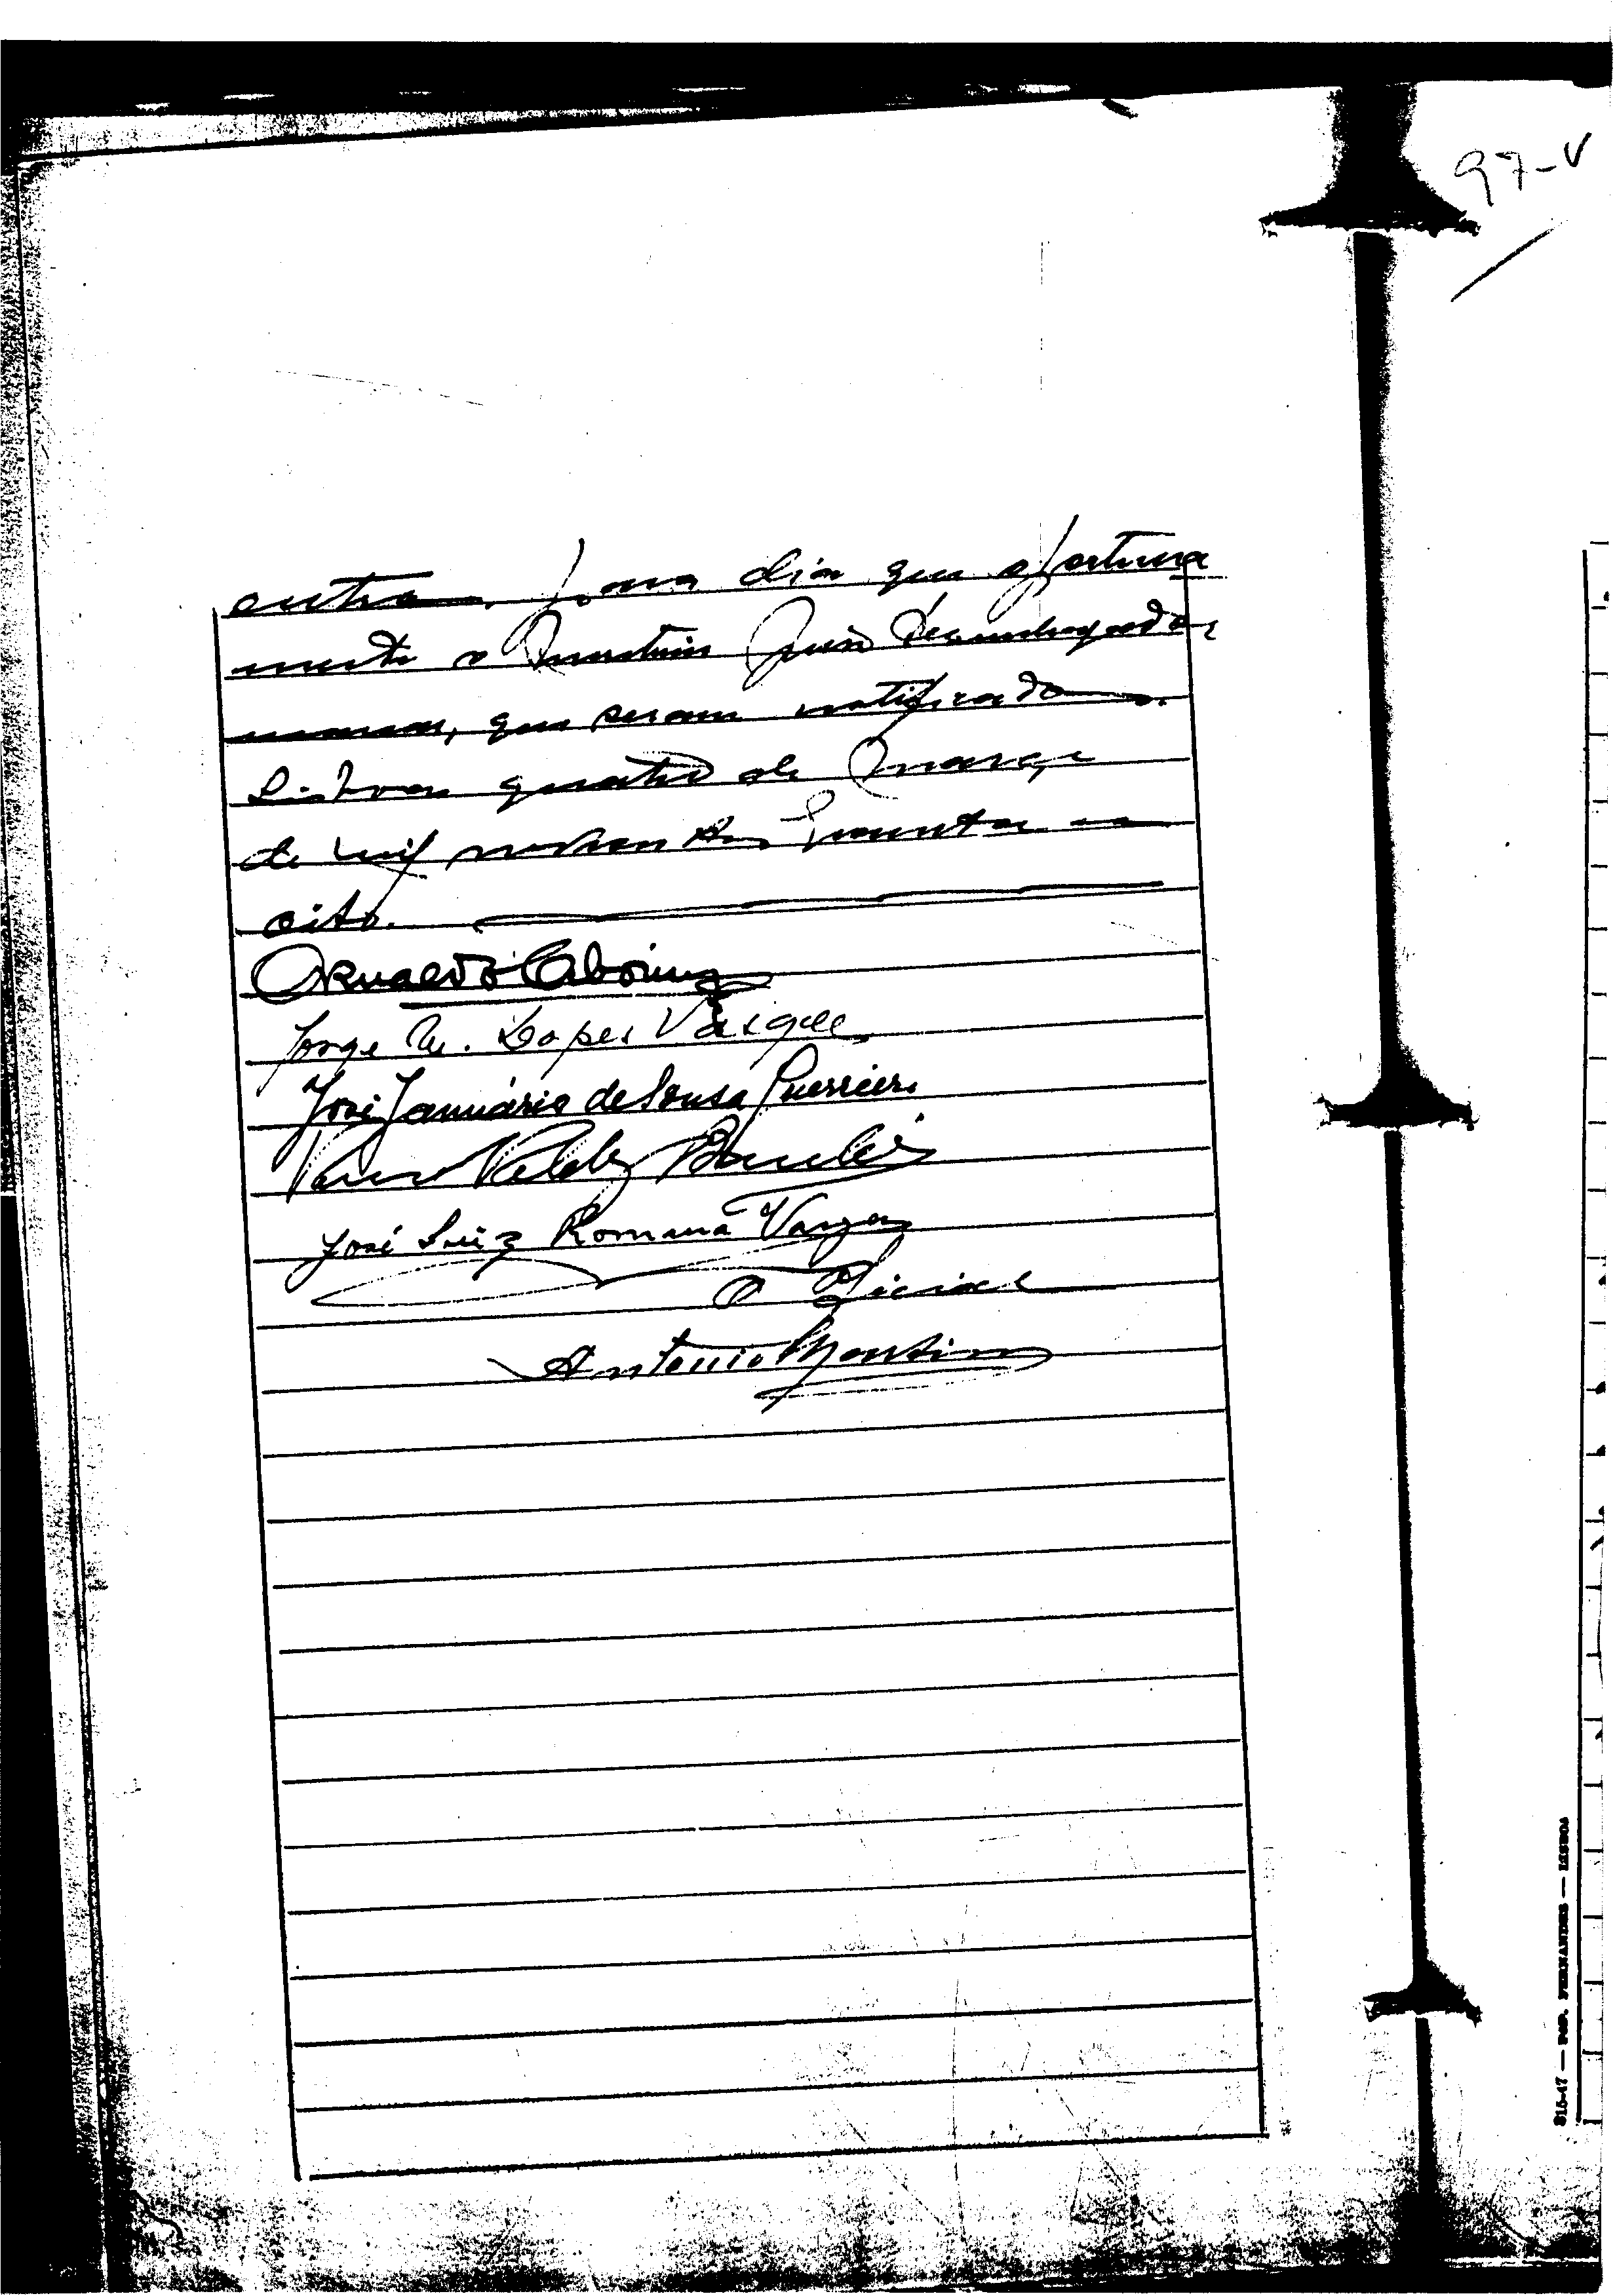 97-V
outra para dia que oportuna
mente o Juiz Desembargador
marcar, que seram notificado
Lisboa quatro de Março
de mil novecentos quarenta e
oito.
Arnaldo Aboim
Jorge M. Lopes Vasques
José Januário de Sousa Guerreiro
Valdez
José Luiz Romana Vargas
O Oficial
Antonio Martins
315-47 — PAP. FERNANDES — LISBOA